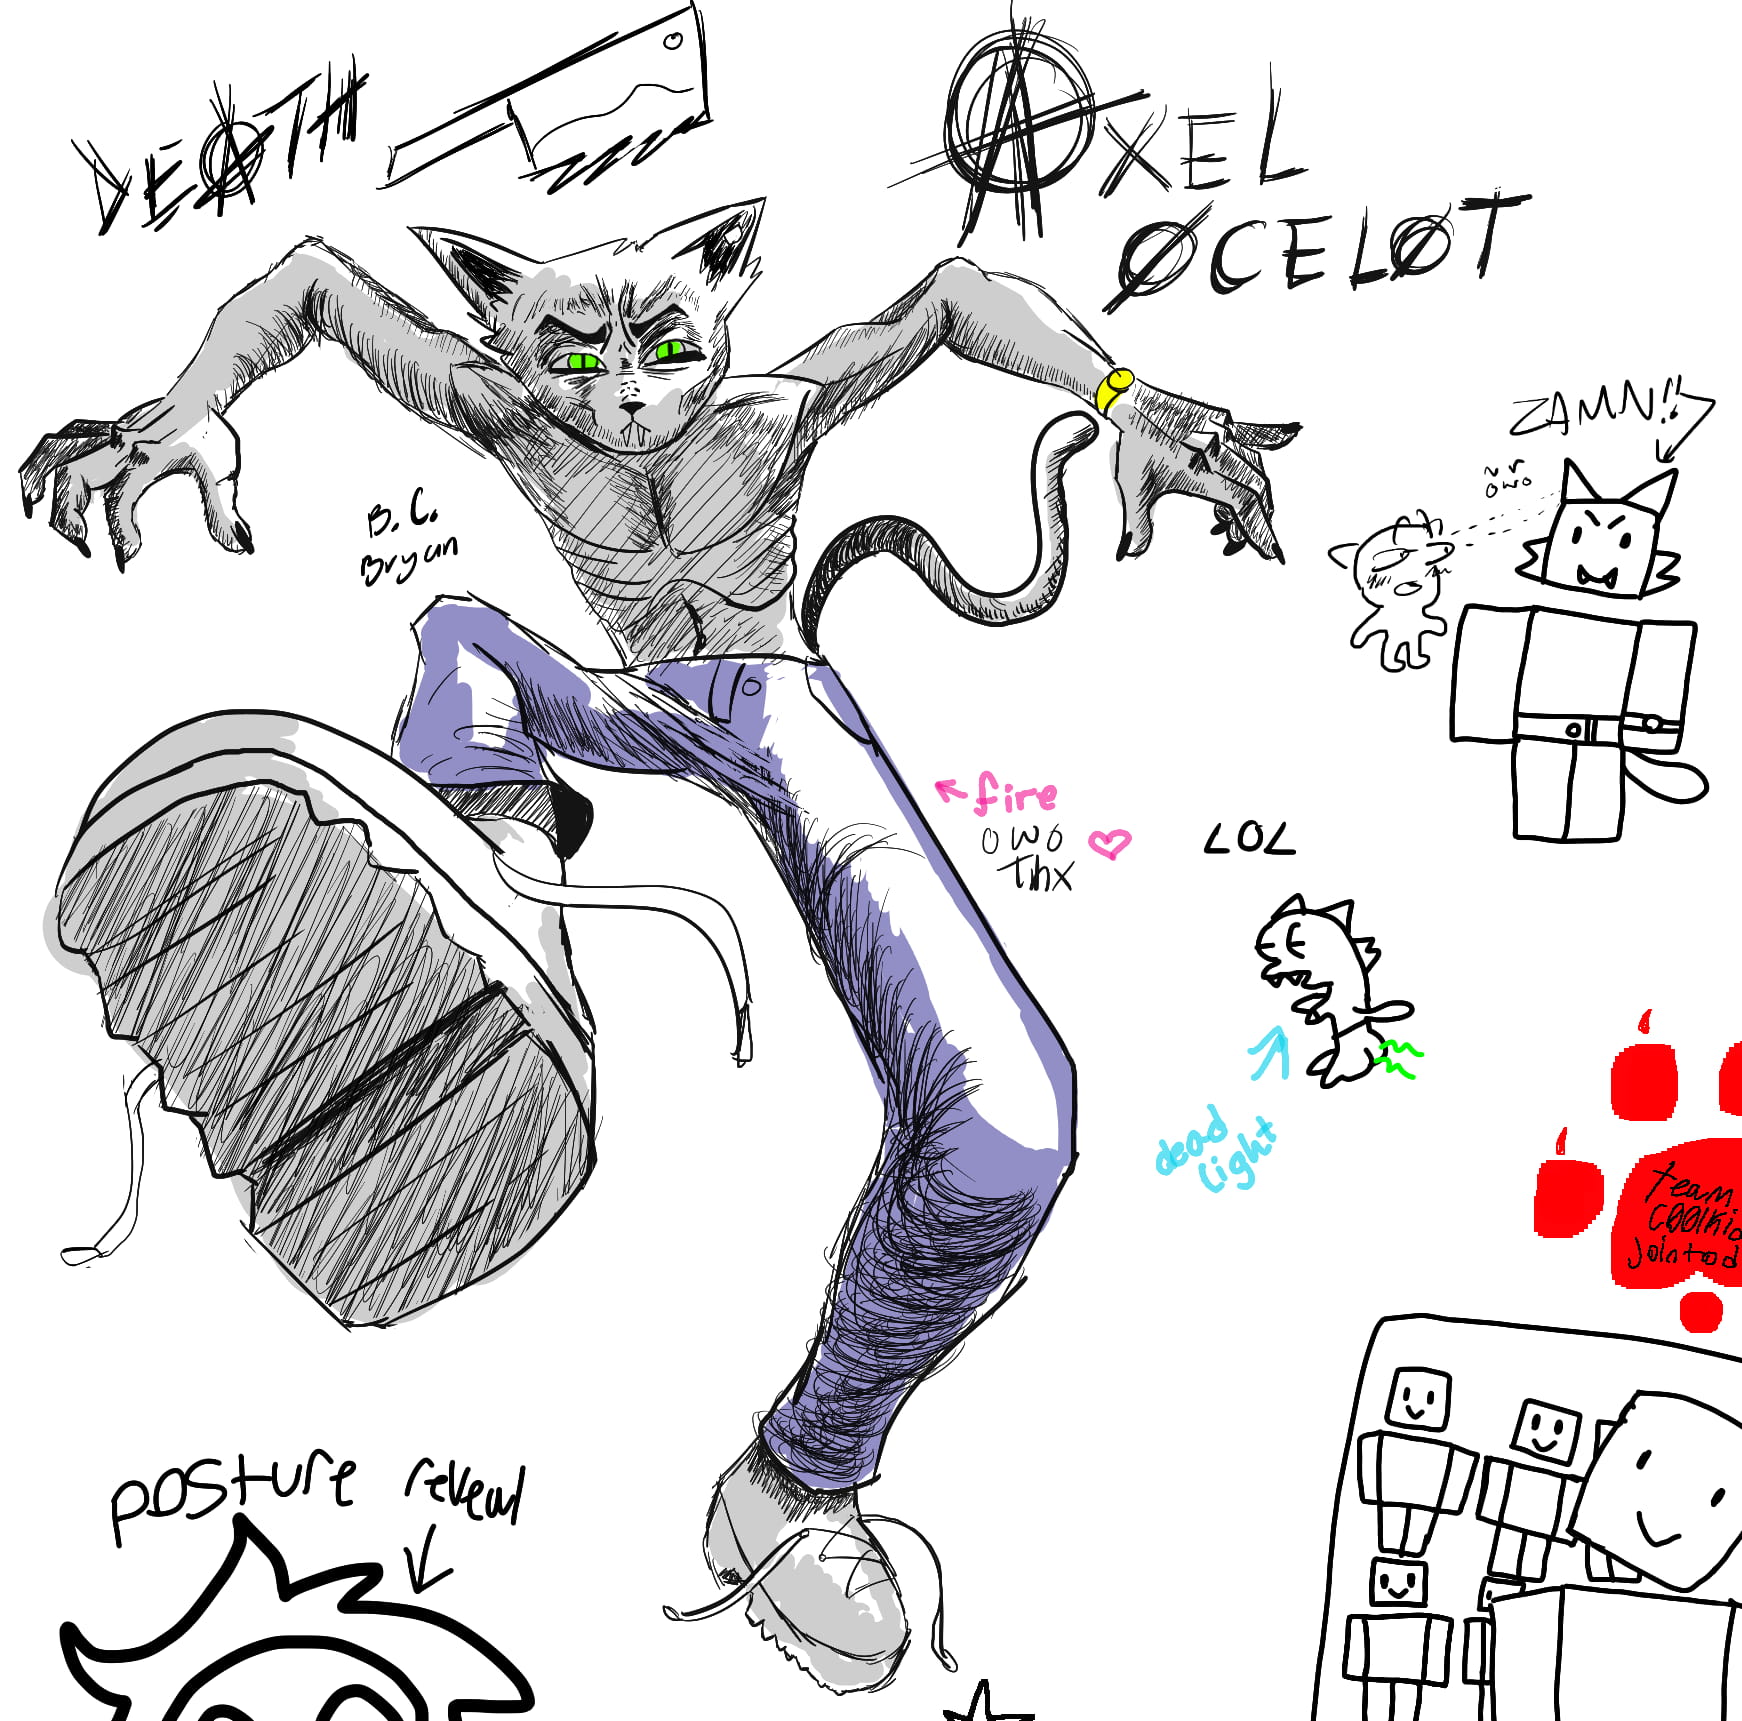 DEATH
AXEL
OCELOT
ZAMN!!
owo
B. C.
Bryan
fire
owo
Thx
LOL
dead
light
team
C00lkid
join tod
posture reveal